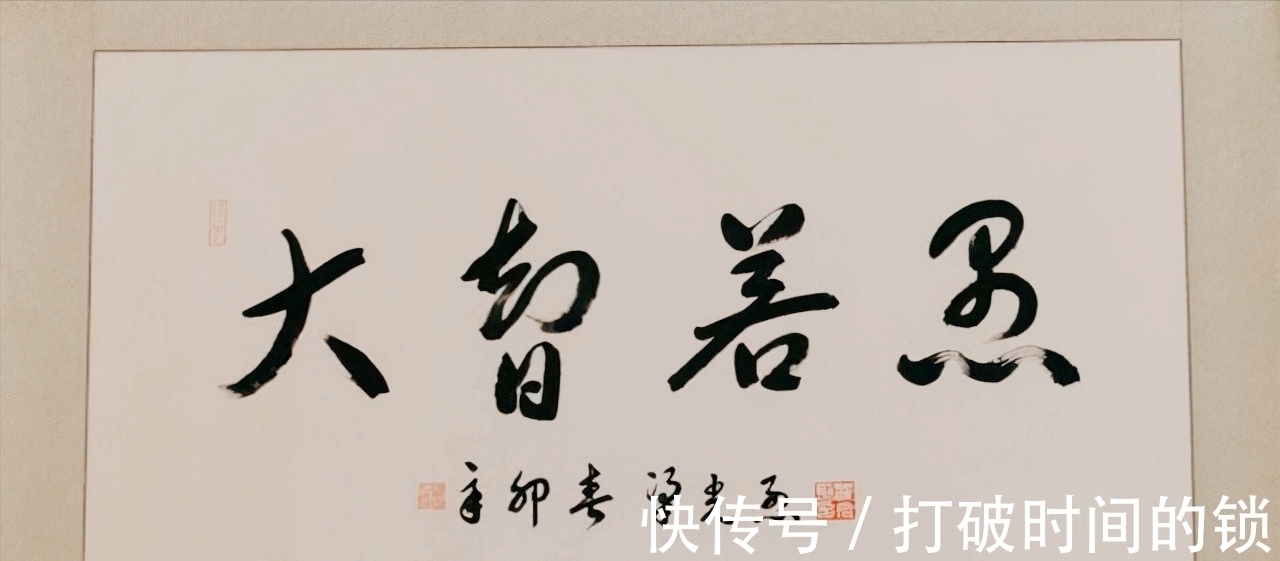 大智若愚
辛卯春 梁光烈
快传号 / 打破时间的锁